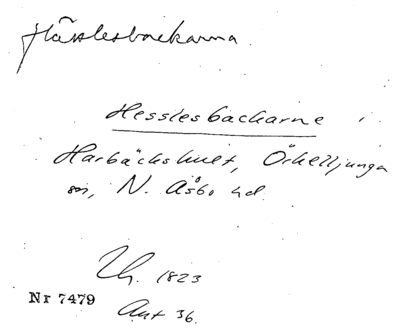 Hässlesbackarna
Hesslesbackarne i
Harbäckshult, Örkelljunga
sn, N. Åsbo hd.
Uh. 1823
Nr 7479
Ant 36.